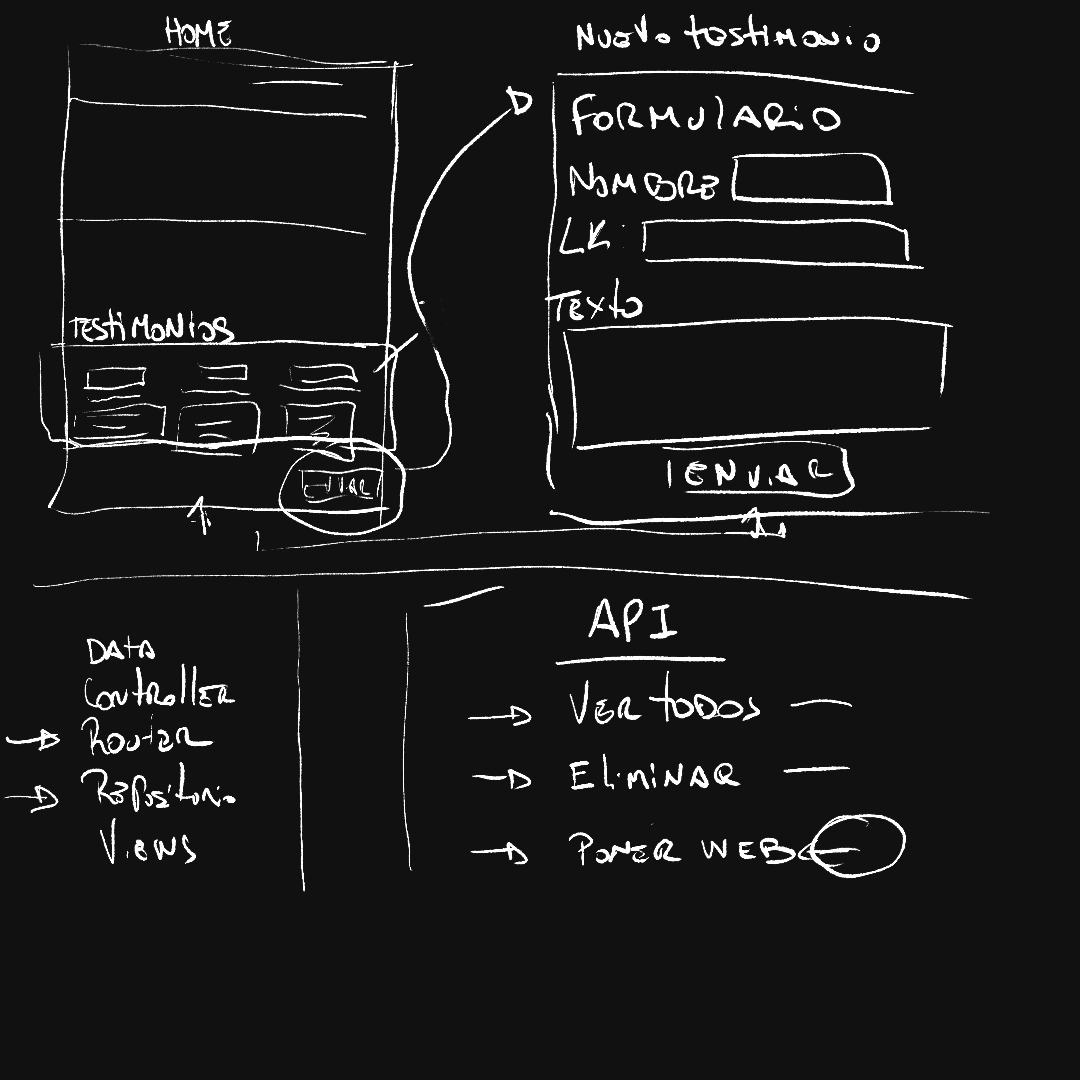 HOME
TESTIMONIOS
ENVIAR
NUEVO TESTIMONIO
FORMULARIO
NOMBRE
LK:
TEXTO
ENVIAR
DATA
CONTROLLER
ROUTER
REPOSITORIO
VIEWS
API
VER TODOS
ELIMINAR
PONER WEB